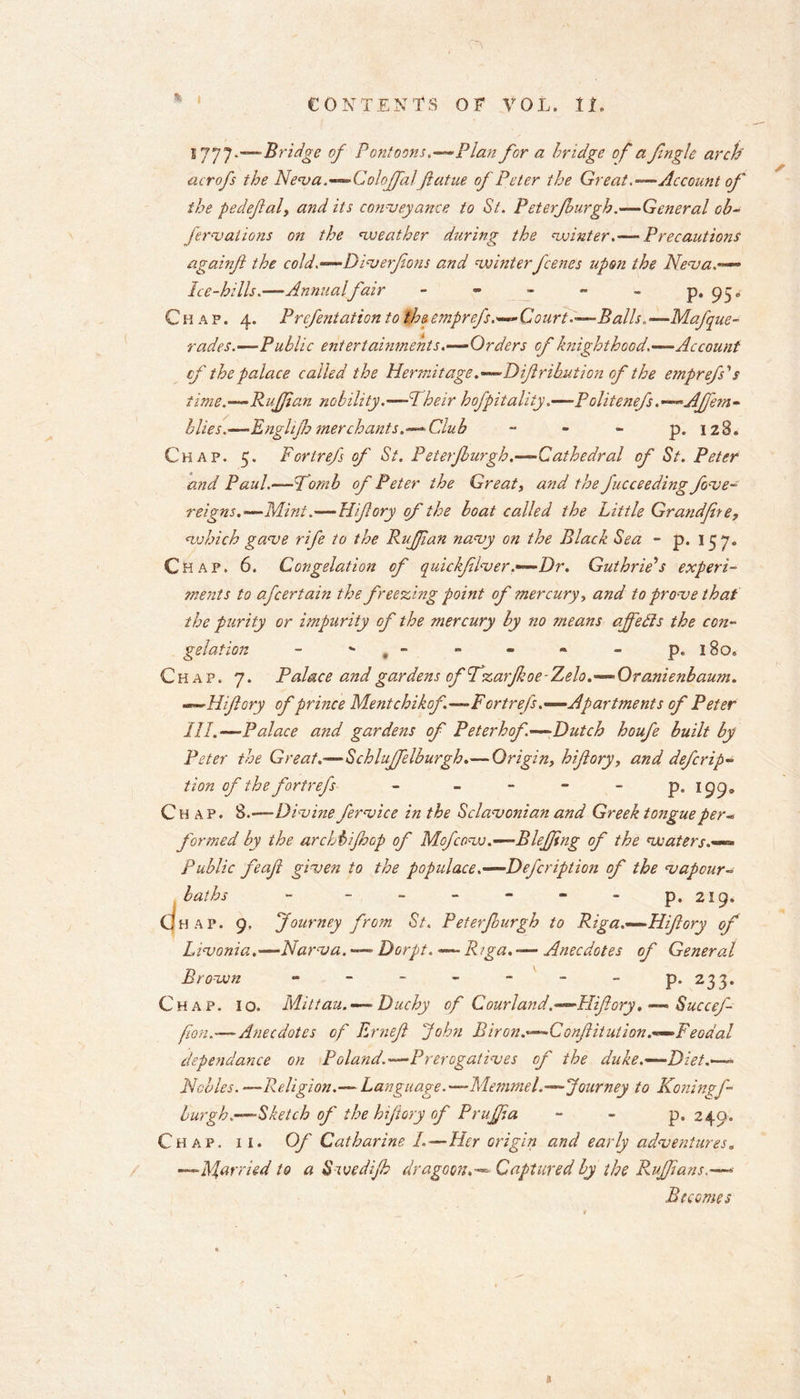 CONTENTS OF VOL. II.
1777.—Bridge of Pontoons.—Plan for a bridge of a ſingle arch
acroſs the Neva.—Coloſſal ſtatue of Peter the Great.—Account of
the pedeſtal, and its conveyance to St. Peterſburgh.—General ob-
ſervations on the weather during the winter.—Precautions
againſt the cold.—Diverſions and winter ſcenes upon the Neva.—
Ice-hills.—Annual fair - - - - - p. 95.
CHAP. 4. Preſentation to the empreſs.—Court.—Balls.—Maſque-
rades.—Public entertainments.—Orders of knighthood.—Account
of the palace called the Hermitage.—Diſtribution of the empreſs's
time.—Ruſſian nobility.—Their hoſpitality.—Politeneſs.—Aſſem-
blies.—Engliſh merchants.—Club - - - p. 128.
CHAP. 5. Fortreſs of St. Peterſburgh.—Cathedral of St. Peter
and Paul.—Tomb of Peter the Great, and the ſucceeding ſove-
reigns.—Mint.—Hiſtory of the boat called the Little Grandſire,
which gave riſe to the Ruſſian navy on the Black Sea - p. 157.
CHAP. 6. Congelation of quickſilver.—Dr. Guthrie's experi-
ments to aſcertain the freezing point of mercury, and to prove that
the purity or impurity of the mercury by no means affects the con-
gelation - - - - - - - p. 180.
CHAP. 7. Palace and gardens of Tzarſkoe-Zelo.—Oranienbaum.
—Hiſtory of prince Mentchikof.—Fortreſs.—Apartments of Peter
III.—Palace and gardens of Peterhof.—Dutch houſe built by
Peter the Great.—Schluſſelburgh.—Origin, hiſtory, and deſcrip-
tion of the fortreſs - - - - - p. 199.
CHAP. 8.—Divine ſervice in the Sclavonian and Greek tongue per-
formed by the archbiſhop of Moſcow.—Bleſſing of the waters.—
Public feaſt given to the populace.—Deſcription of the vapour-
baths - - - - - - - p. 219.
CHAP. 9. Journey from St. Peterſburgh to Riga.—Hiſtory of
Livonia.—Narva.—Dorpt.—Riga.—Anecdotes of General
Brown - - - - - - - p. 233.
CHAP. 10. Mittau.—Duchy of Courland.—Hiſtory.—Succeſ-
ſion.—Anecdotes of Erneſt John Biron.—Conſtitution.—Feodal
dependance on Poland.—Prerogatives of the duke.—Diet.—
Nobles.—Religion.—Language.—Memmel.—Journey to Koningſ-
burgh.—Sketch of the hiſtory of Pruſſia - - p. 249.
CHAP. 11. Of Catharine I.—Her origin and early adventures.
—Married to a Swediſh dragoon.—Captured by the Ruſſians.—
Becomes